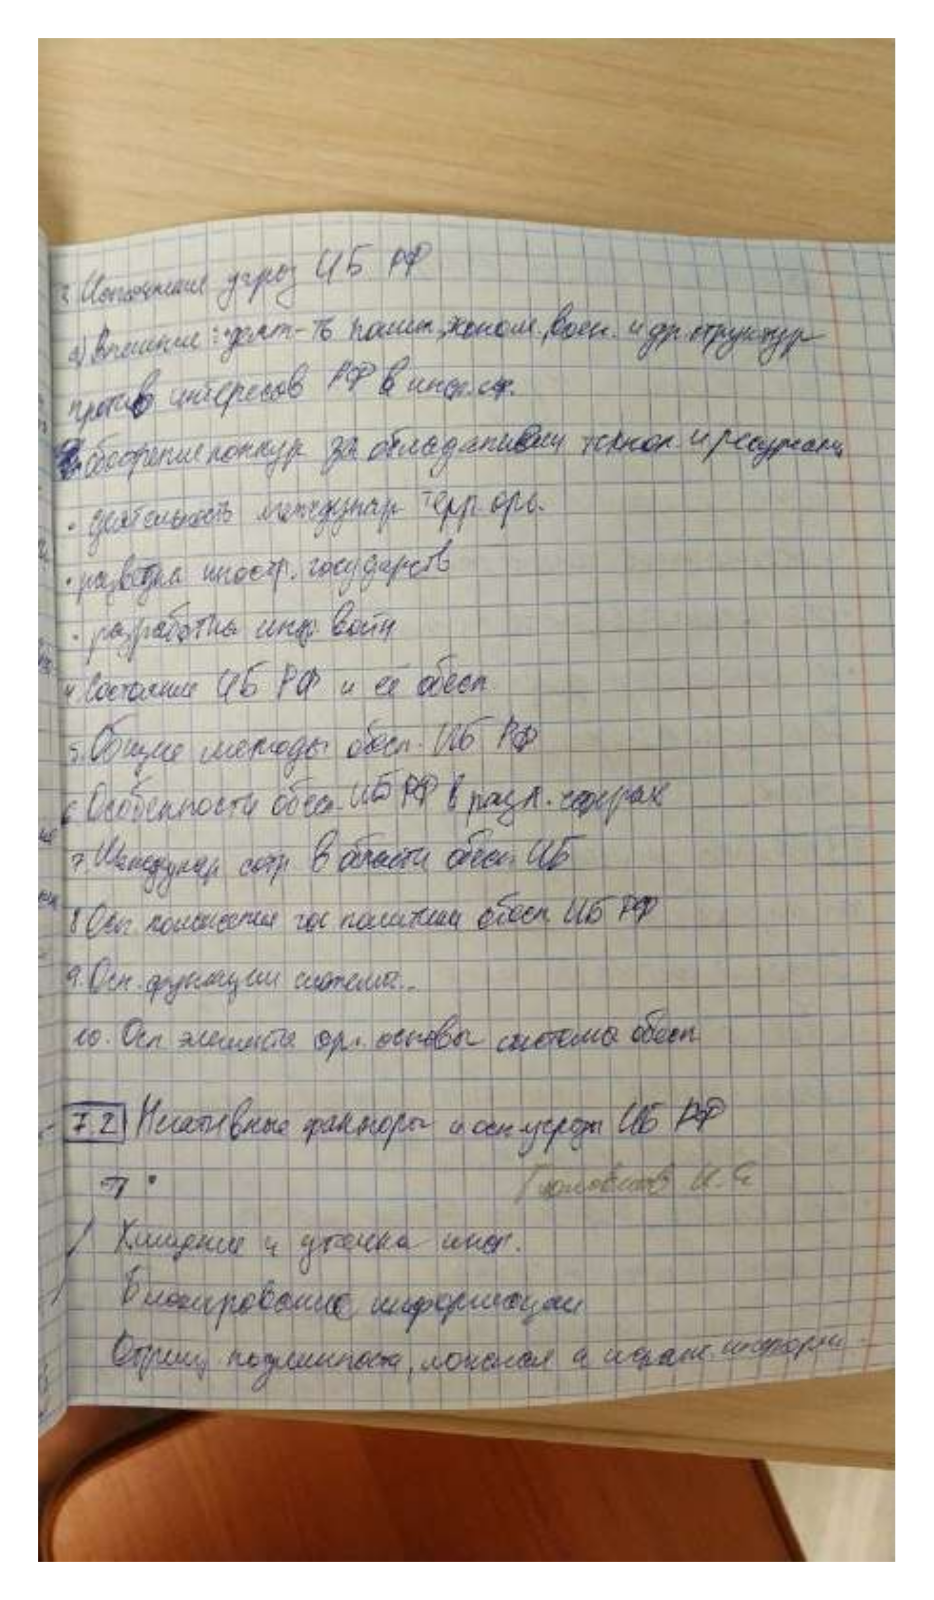 3. Источники угроз ИБ РФ
а) Внешние: деят-ть полит, эконом, воен. и др. структур
против интересов РФ в инф. сф.
обострение конкур за обладание технол и ресурсами
• деятельность междунар терр. орг.
• разведка иностр. государств
• разработка инф. войн
4. Состояние ИБ РФ и её обесп
5. Общие методы обесп. ИБ РФ
6. Особенности обесп. ИБ РФ в разл. сферах
7. Междунар сотр в области обесп. ИБ
8 Осн. положения гос политики обесп ИБ РФ
9. Осн. функции системы..
10. Осн элементы орг. основы системы обесп
7.2 Негативные факторы и осн угрозы ИБ РФ
Хищение и утечка инф.
Блокирование информации
Отриц подлинности, ложная информ